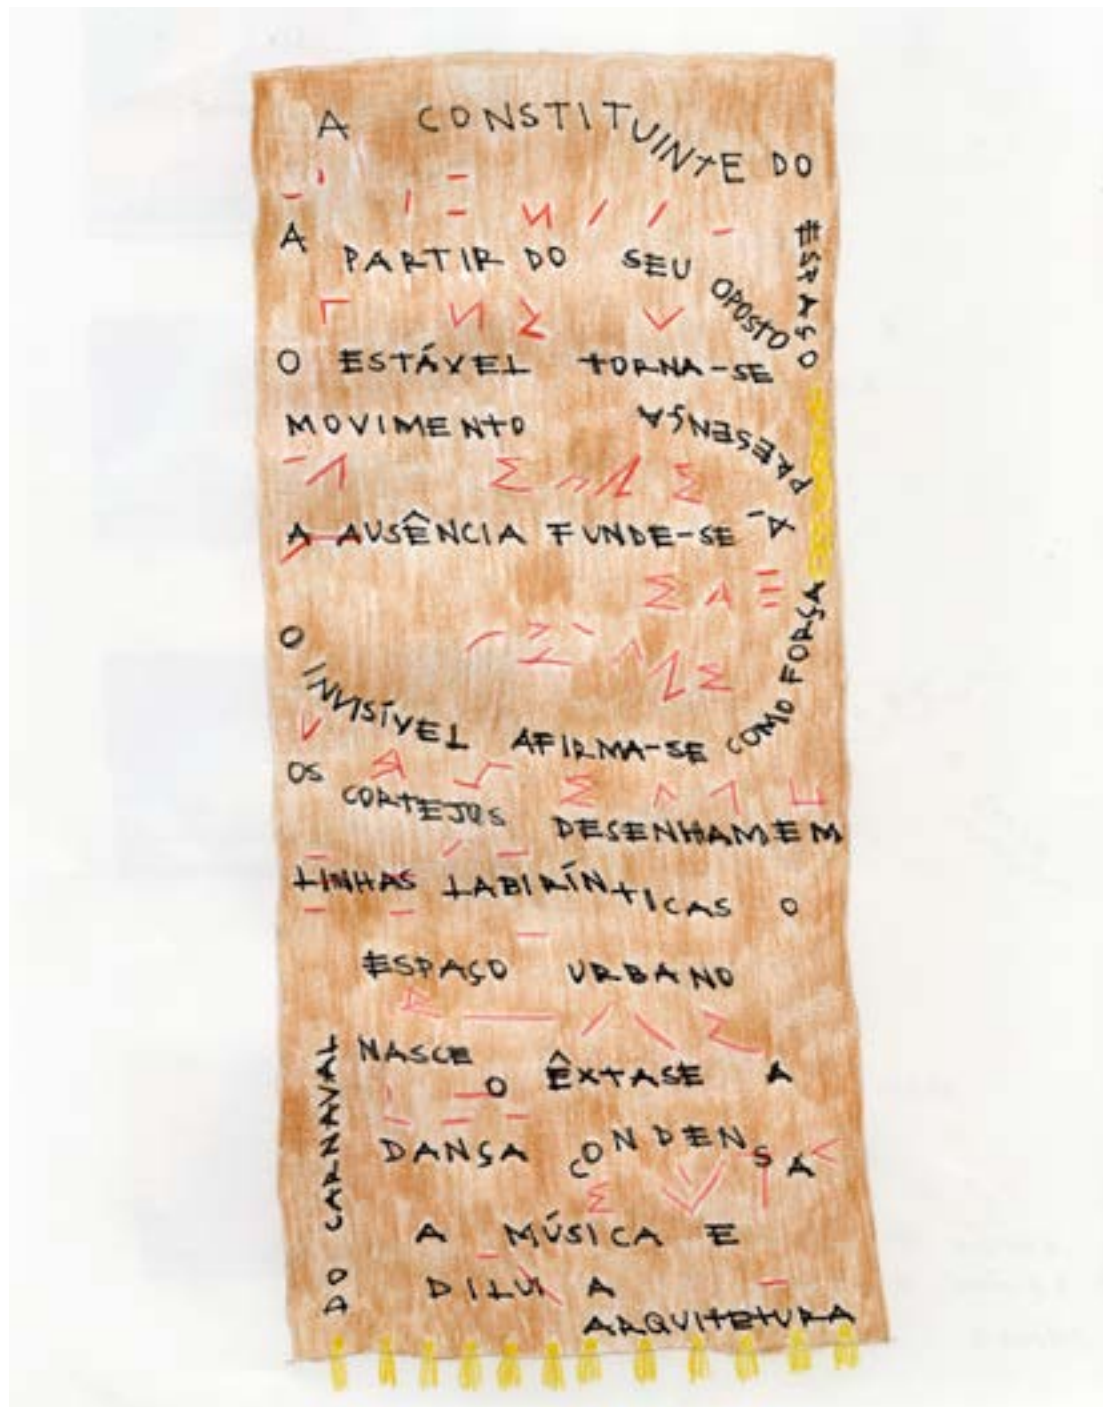 A CONSTITUINTE DO
ESPAÇO
A PARTIR DO SEU OPOSTO
O ESTÁVEL TORNA-SE
MOVIMENTO
A AUSÊNCIA FUNDE-SE À
PRESENÇA
O INVISÍVEL AFIRMA-SE COMO FORÇA
OS CORTEJOS DESENHAM EM
LINHAS LABIRÍNTICAS O
ESPAÇO URBANO
DO CARNAVAL
NASCE O ÊXTASE A
DANÇA CONDENSA
A MÚSICA E
DILUI A
ARQUITETURA